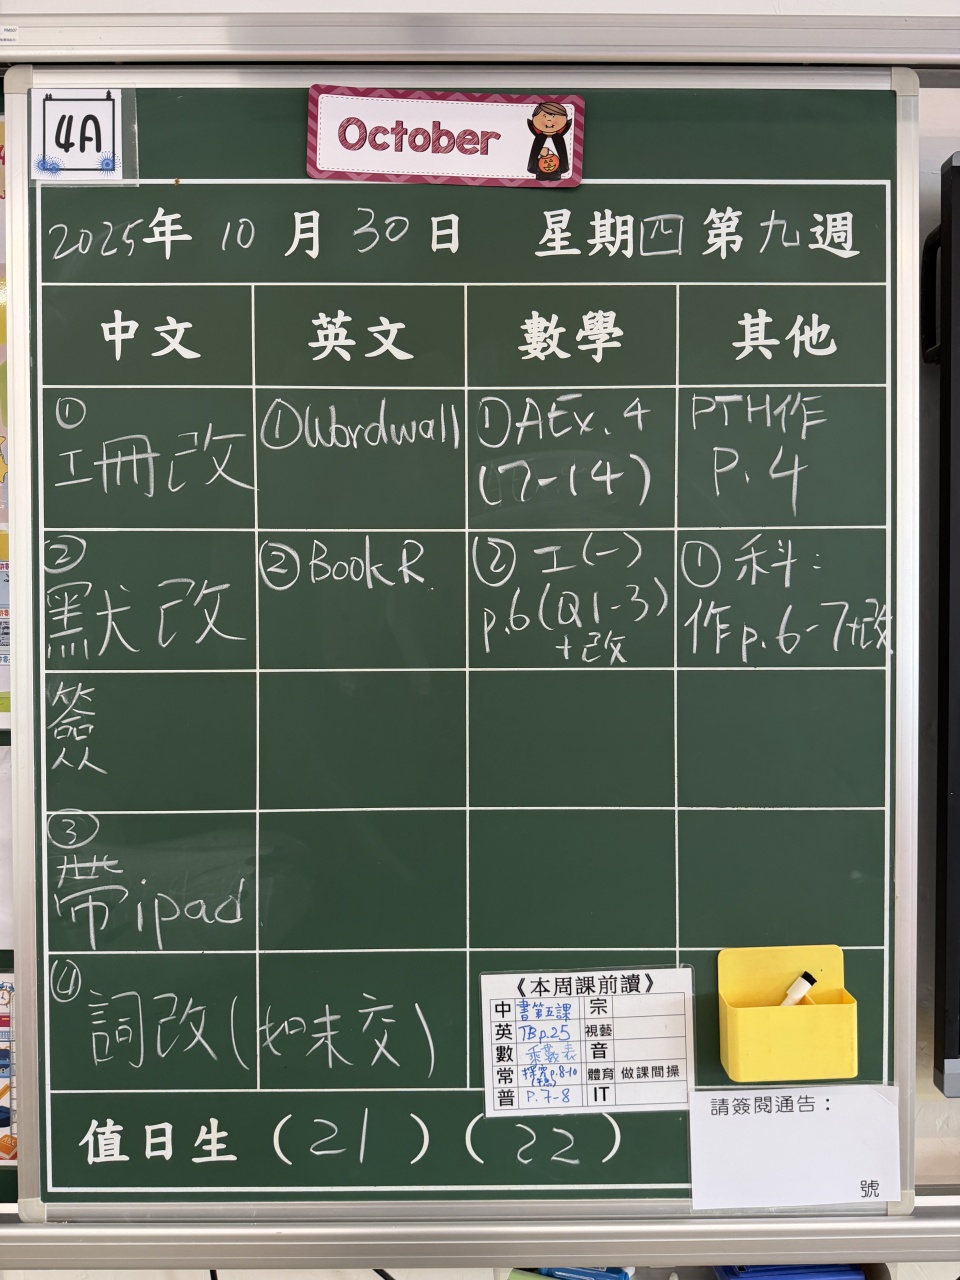 4A
October
2025年 10 月 30 日 星期四 第九週
中文 英文 數學 其他
①
工冊改
②
默改
簽
③
帶ipad
④
詞改(如未交)
① Wordwall
② Book R
① AEx. 4
(7-14)
② 工(一)
p.6(Q1-3)
+改
PTH作
P. 4
① 科:
作p.6-7+改
《本周課前讀》
中 書第五課 宗
英 TB p.25 視藝
數 乘數表 音
常 探究p.8-10 體育 做課間操
普 P.7-8 IT
請簽閱通告：
號
值日生 (21) (22)